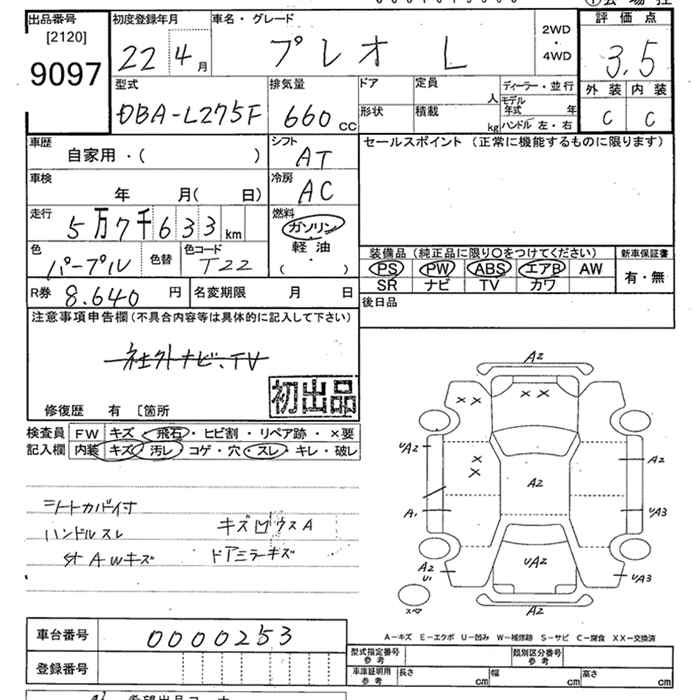 出品番号 [2120] 9097
初度登録年月 22 4月
車名・グレード プレオ L
2WD・4WD
評価点 3.5
外装 C 内装 C
型式 DBA-L275F
排気量 660 CC
ドア 形状
定員 人 積載 kg
ディーラー・並行
モデル年式 年
ハンドル 左・右
車歴 自家用・( )
シフト AT
セールスポイント (正常に機能するものに限ります)
車検 年 月( 日)
冷房 AC
走行 5万7千633km
燃料 ガソリン 軽油 ( ・ )
色 パープル 色替 色コード T22
装備品 (純正品に限り○をつけてください)
PS PW ABS エアB AW
SR ナビ TV カワ
新車保証書 有・無
R券 8.640 円 名変期限 月 日
後日品
注意事項申告欄 (不具合内容等は具体的に記入して下さい)
ナビ、TV
初出品
修復歴 有 [箇所
検査員 FW キズ・飛石・ヒビ割・リペア跡・×要
記入欄 内装 キズ・汚レ・コゲ・穴・スレ・キレ・破レ
シートカバー付
ハンドルスレ キズ凹ウスA
AWキズ ドアミラーキズ
A2
XX XX
UA2 A2
X
X A2
A1 UA3
A2 UA2
U1 UA3
スペア A2
A-キズ E-エクボ U-凹み W-補修跡 S-サビ C-腐食 XX-交換済
車台番号 0000253
登録番号
型式指定番号 参考 類別区分番号 参考
車庫証明用 参考 長さ cm 幅 cm 高さ cm